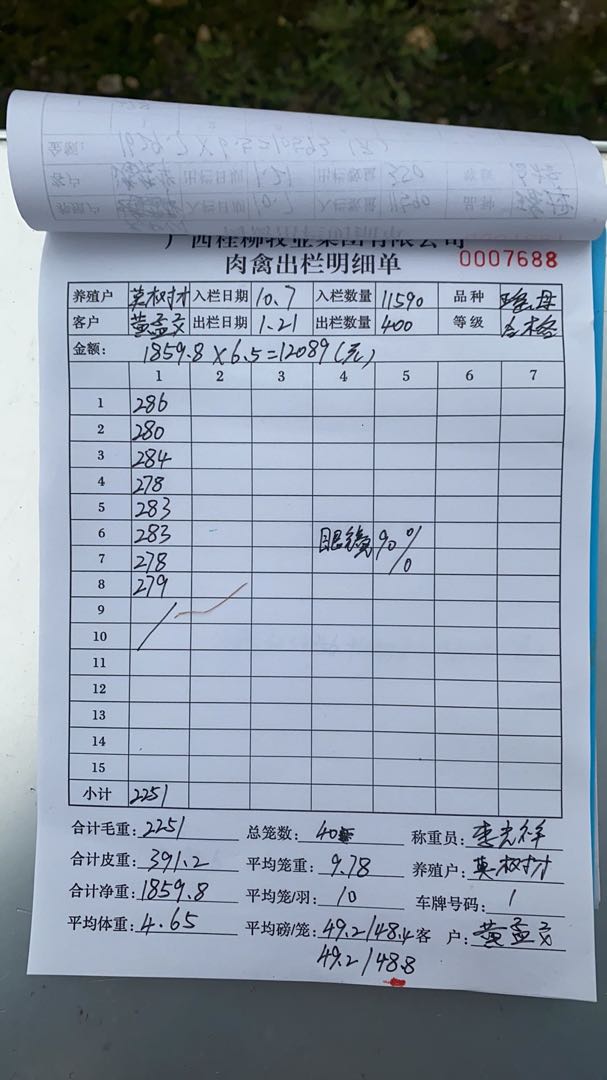 广西桂柳牧业集团有限公司
肉禽出栏明细单 0007688
养殖户 莫树材 入栏日期 10.7 入栏数量 11590 品种
客户 黄孟文 出栏日期 1.21 出栏数量 400 等级 合格
金额: 1859.8×6.5=12089(元)
1 2 3 4 5 6 7
1 286
2 280
3 284
4 278
5 283
6 283 眼镜90%
7 278
8 279
9
10
11
12
13
14
15
小计 2251
合计毛重: 2251 总笼数: 40 称重员: 李光祥
合计皮重: 391.2 平均笼重: 9.78 养殖户: 莫树材
合计净重: 1859.8 平均笼/羽: 10 车牌号码: 1
平均体重: 4.65 平均磅/笼: 49.2/48.4 客户: 黄孟文
49.2/48.8